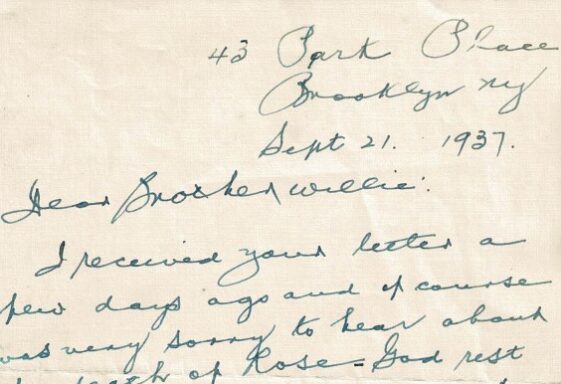 43 Park Place
Brooklyn NY
Sept 21. 1937.
Dear Brother Willie:
I received your letter a
few days ago and of course
was very sorry to hear about
death of Rose - God rest